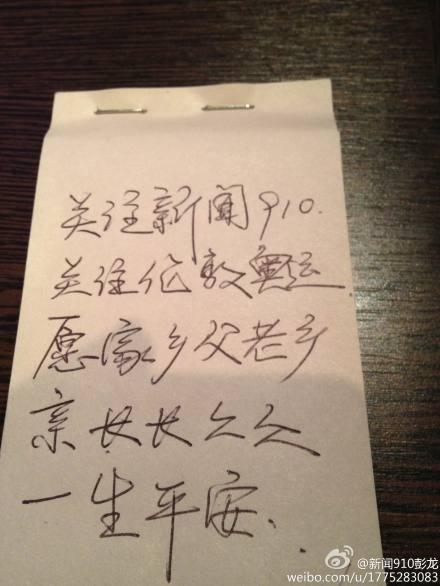 关注新闻910.
关注伦敦奥运
愿家乡父老乡
亲长长久久
一生平安.
@新闻910彭龙
weibo.com/u/1775283083